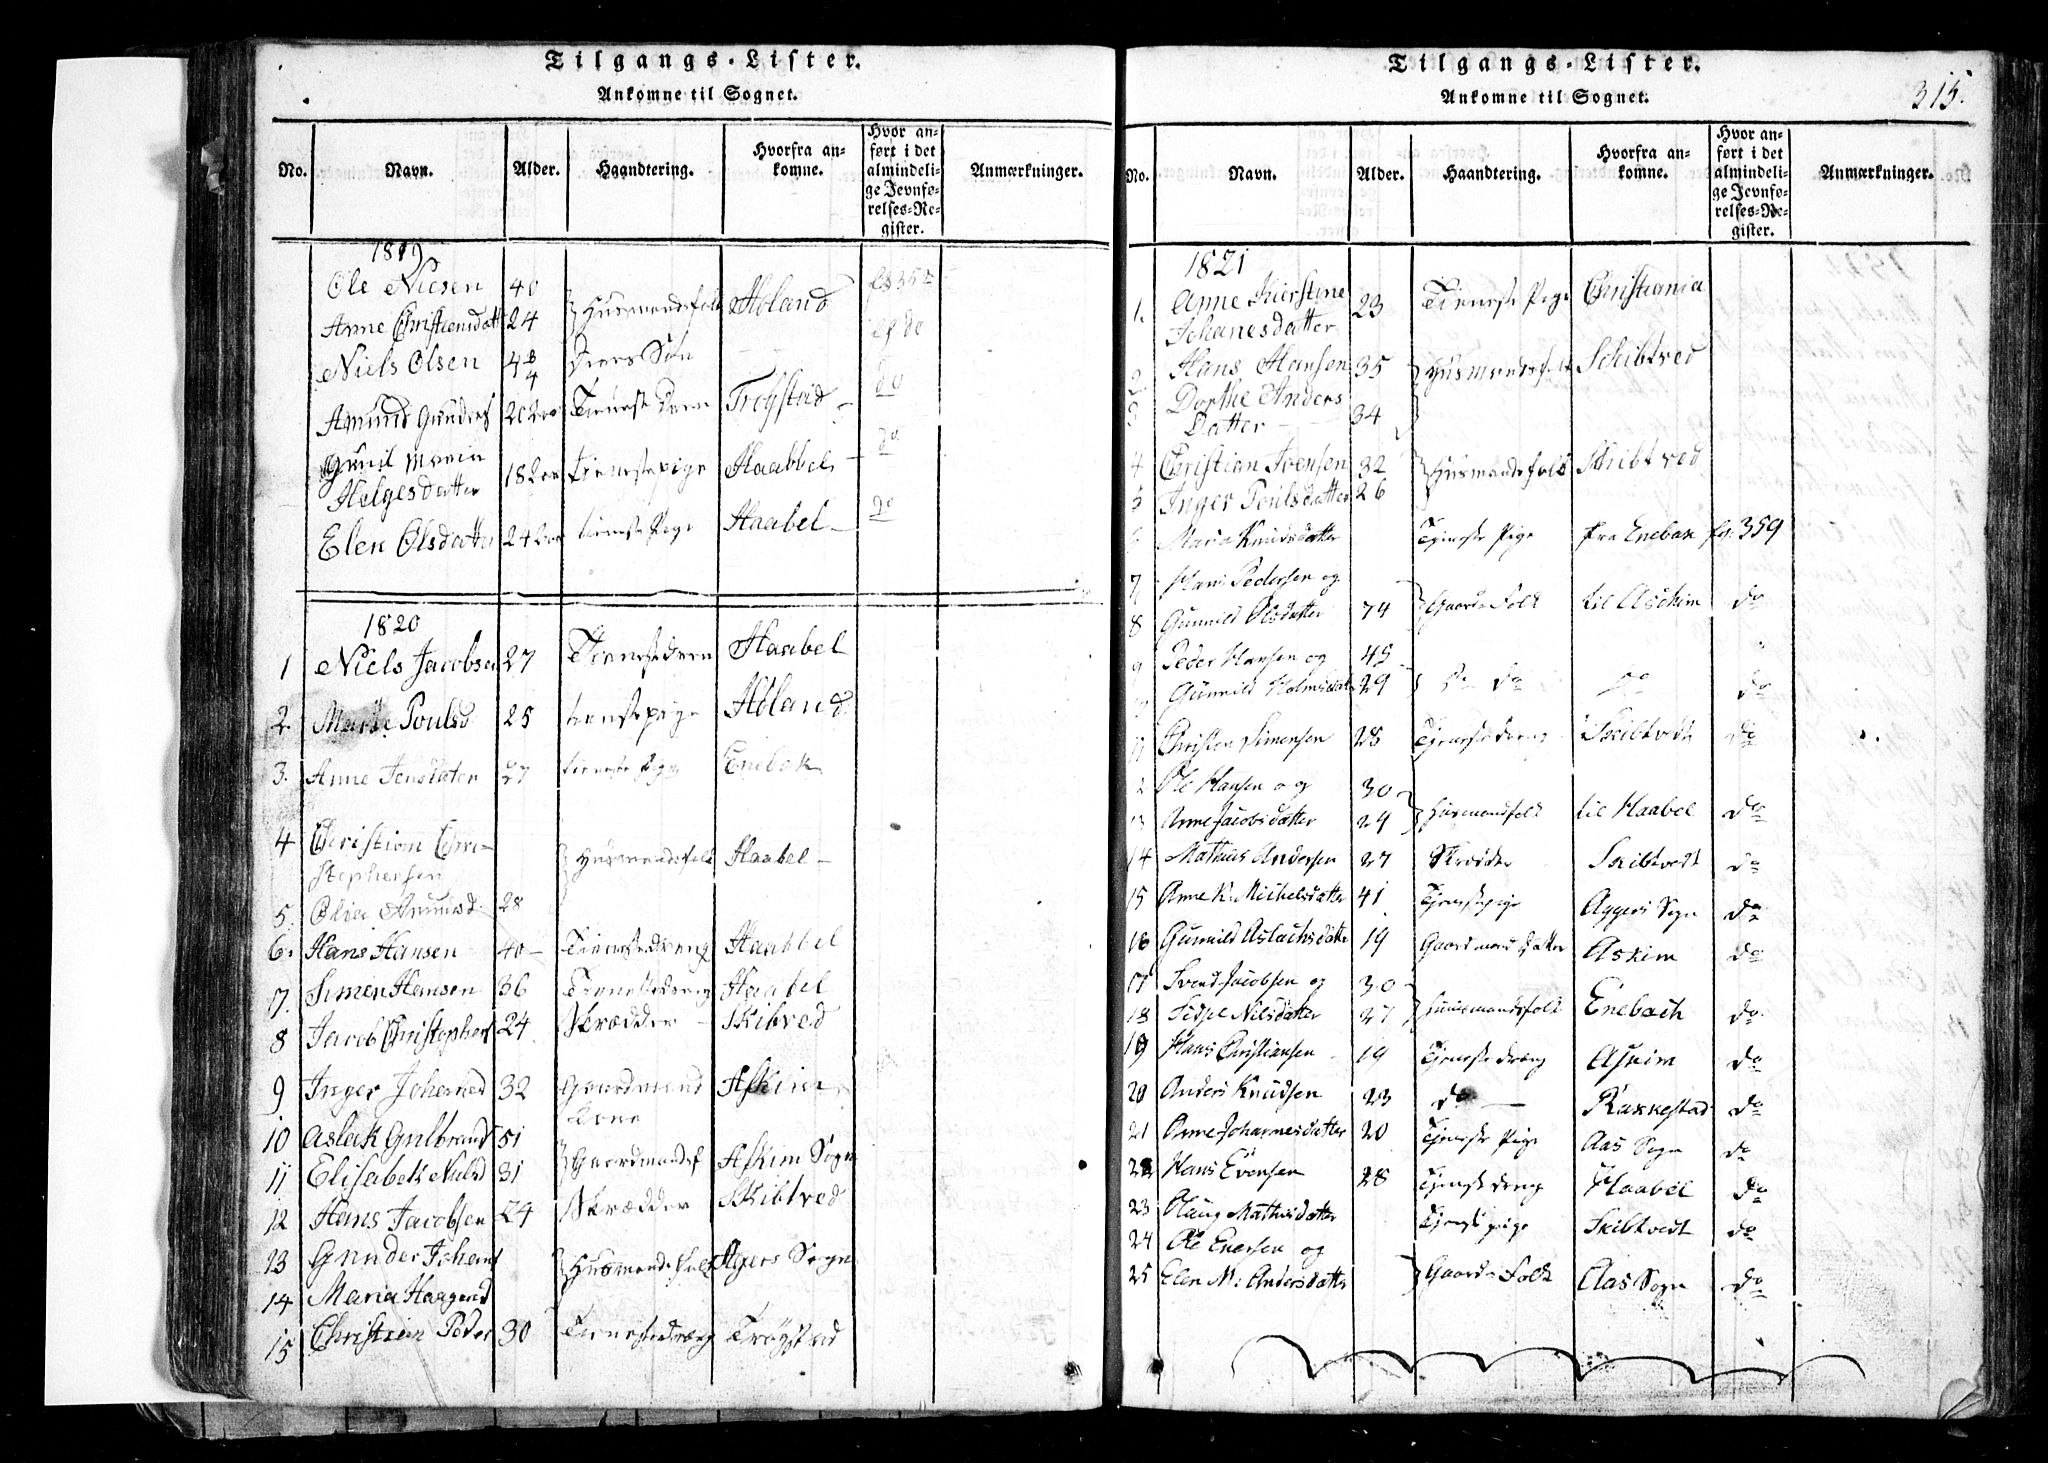 Tilgangs-Lister.
Ankomne til Sognet.
No. Navn. Alder. Haandtering. Hvorfra ankomne. Hvor anført i det almindelige Jevnførelses-Register. Anmærkninger.
1819
Ole Nielsen 40
Anne Christiansdatt 24 Husmandsfolk Høland
Niels Olsen 4 Deres Søn do
Amund Gunders 20 Tieneste Dren Trøgstad do
Gunil Maria
Helgesdatter 18 tienestepige Haabbel do
Elen Olsdatter 24 tieneste Pige Haabel
1820
1 Niels Jacobsen 27 Tienestedren Haabel
2. Marte Poulsd 25 tienstepige Høland
3. Anne Jensdater 27 tieneste Pige Enebak
4 Christian Chri-
Stophersen Husmandsfolk Haabel
5. Olia Amunsd 28
6. Hans Hansen 40 Tienestedreng Haabbel
7. Simen Hansen 36 Tienestedreng Haabel
8 Jacob Christophers 24 Skrædder Skibved
9 Inger Johansd 32 Gaardmand Kone Askim
10 Aslak Gulbrand 51
11 Elisabek Nielsd 31 Gaardmandsf Askim Sogn
12 Hans Jacobsen 24 Skrædder Skibtved
13 Gunder Johans Husmandsfolk Agers Sogn
14 Maria Haagensd
15 Christian Peder 30 Tienestedreng Trøgstad
Tilgangs-Lister.
Ankomne til Sognet.
315.
No. Navn. Alder. Haandtering. Hvorfra ankomne. Hvor anført i det almindelige Jevnførelses-Register. Anmærkninger.
1821
1. Anne Kierstine
Johanesdatter 23 Tieneste Pige Christiania
2 Hans Hansen 35 Husmandsfolk Schibtved
3 Dorthe Anders
Datter 34
4 Christian Ivensen 32 Husmandsfolk Skibtved
5 Inger Poulsdatter 26
6 Maria Knudsdatter Tjeneste Pige fra Enebak fol. 359
7 Hans Pedersen og
8 Gunnild Olsdatter 74 Gaards Folk til Aschim do
9 Peder Hansen og 45
Gunnild Holmsdatter 29 do do do do
11 Christen Simensen 28 Tjenestedreng Skibtvedt do
2 Ole Hansen og 30
13 Anne Jacobsdatter 29 Husmandfolk til Haabel do
14 Mathias Andersen 27 Skræder Skibtvedt do
15 Anne K. Michelsdatter 41 Tjenestepige Aggers Sogn do
16 Gunnild Aslachsdatter 19 Gaardmands Datter Askim do
17 Svend Jacobsen og 30
18 Sidsel Nilsdatter 27 Huusmandsfolk Enebach do
19 Hans Christiansen 19 Tjeneste dræng Askim do
20 Anders Knudsen 23 do Rakkestad do
21 Anne Johannesdatter 20 Tjeneste Pige Aas Sogn do
22 Hans Evensen 28 Tjeneste dreng Haabel do
23 Olaug Mathisdatter Tjenstpige Skibtvedt do
24 Ole Enersen og
25 Elen M: Andersdatter Gaards Folk Aas Sogn do